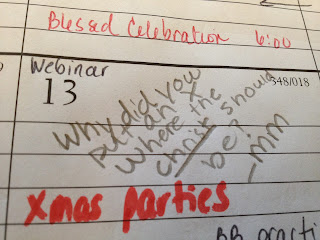 Blessed Celebration 6:00
Webinar
13
348/018
Why did you
put an X
where the
christ should
be?
-MM
xmas parties
BB practi